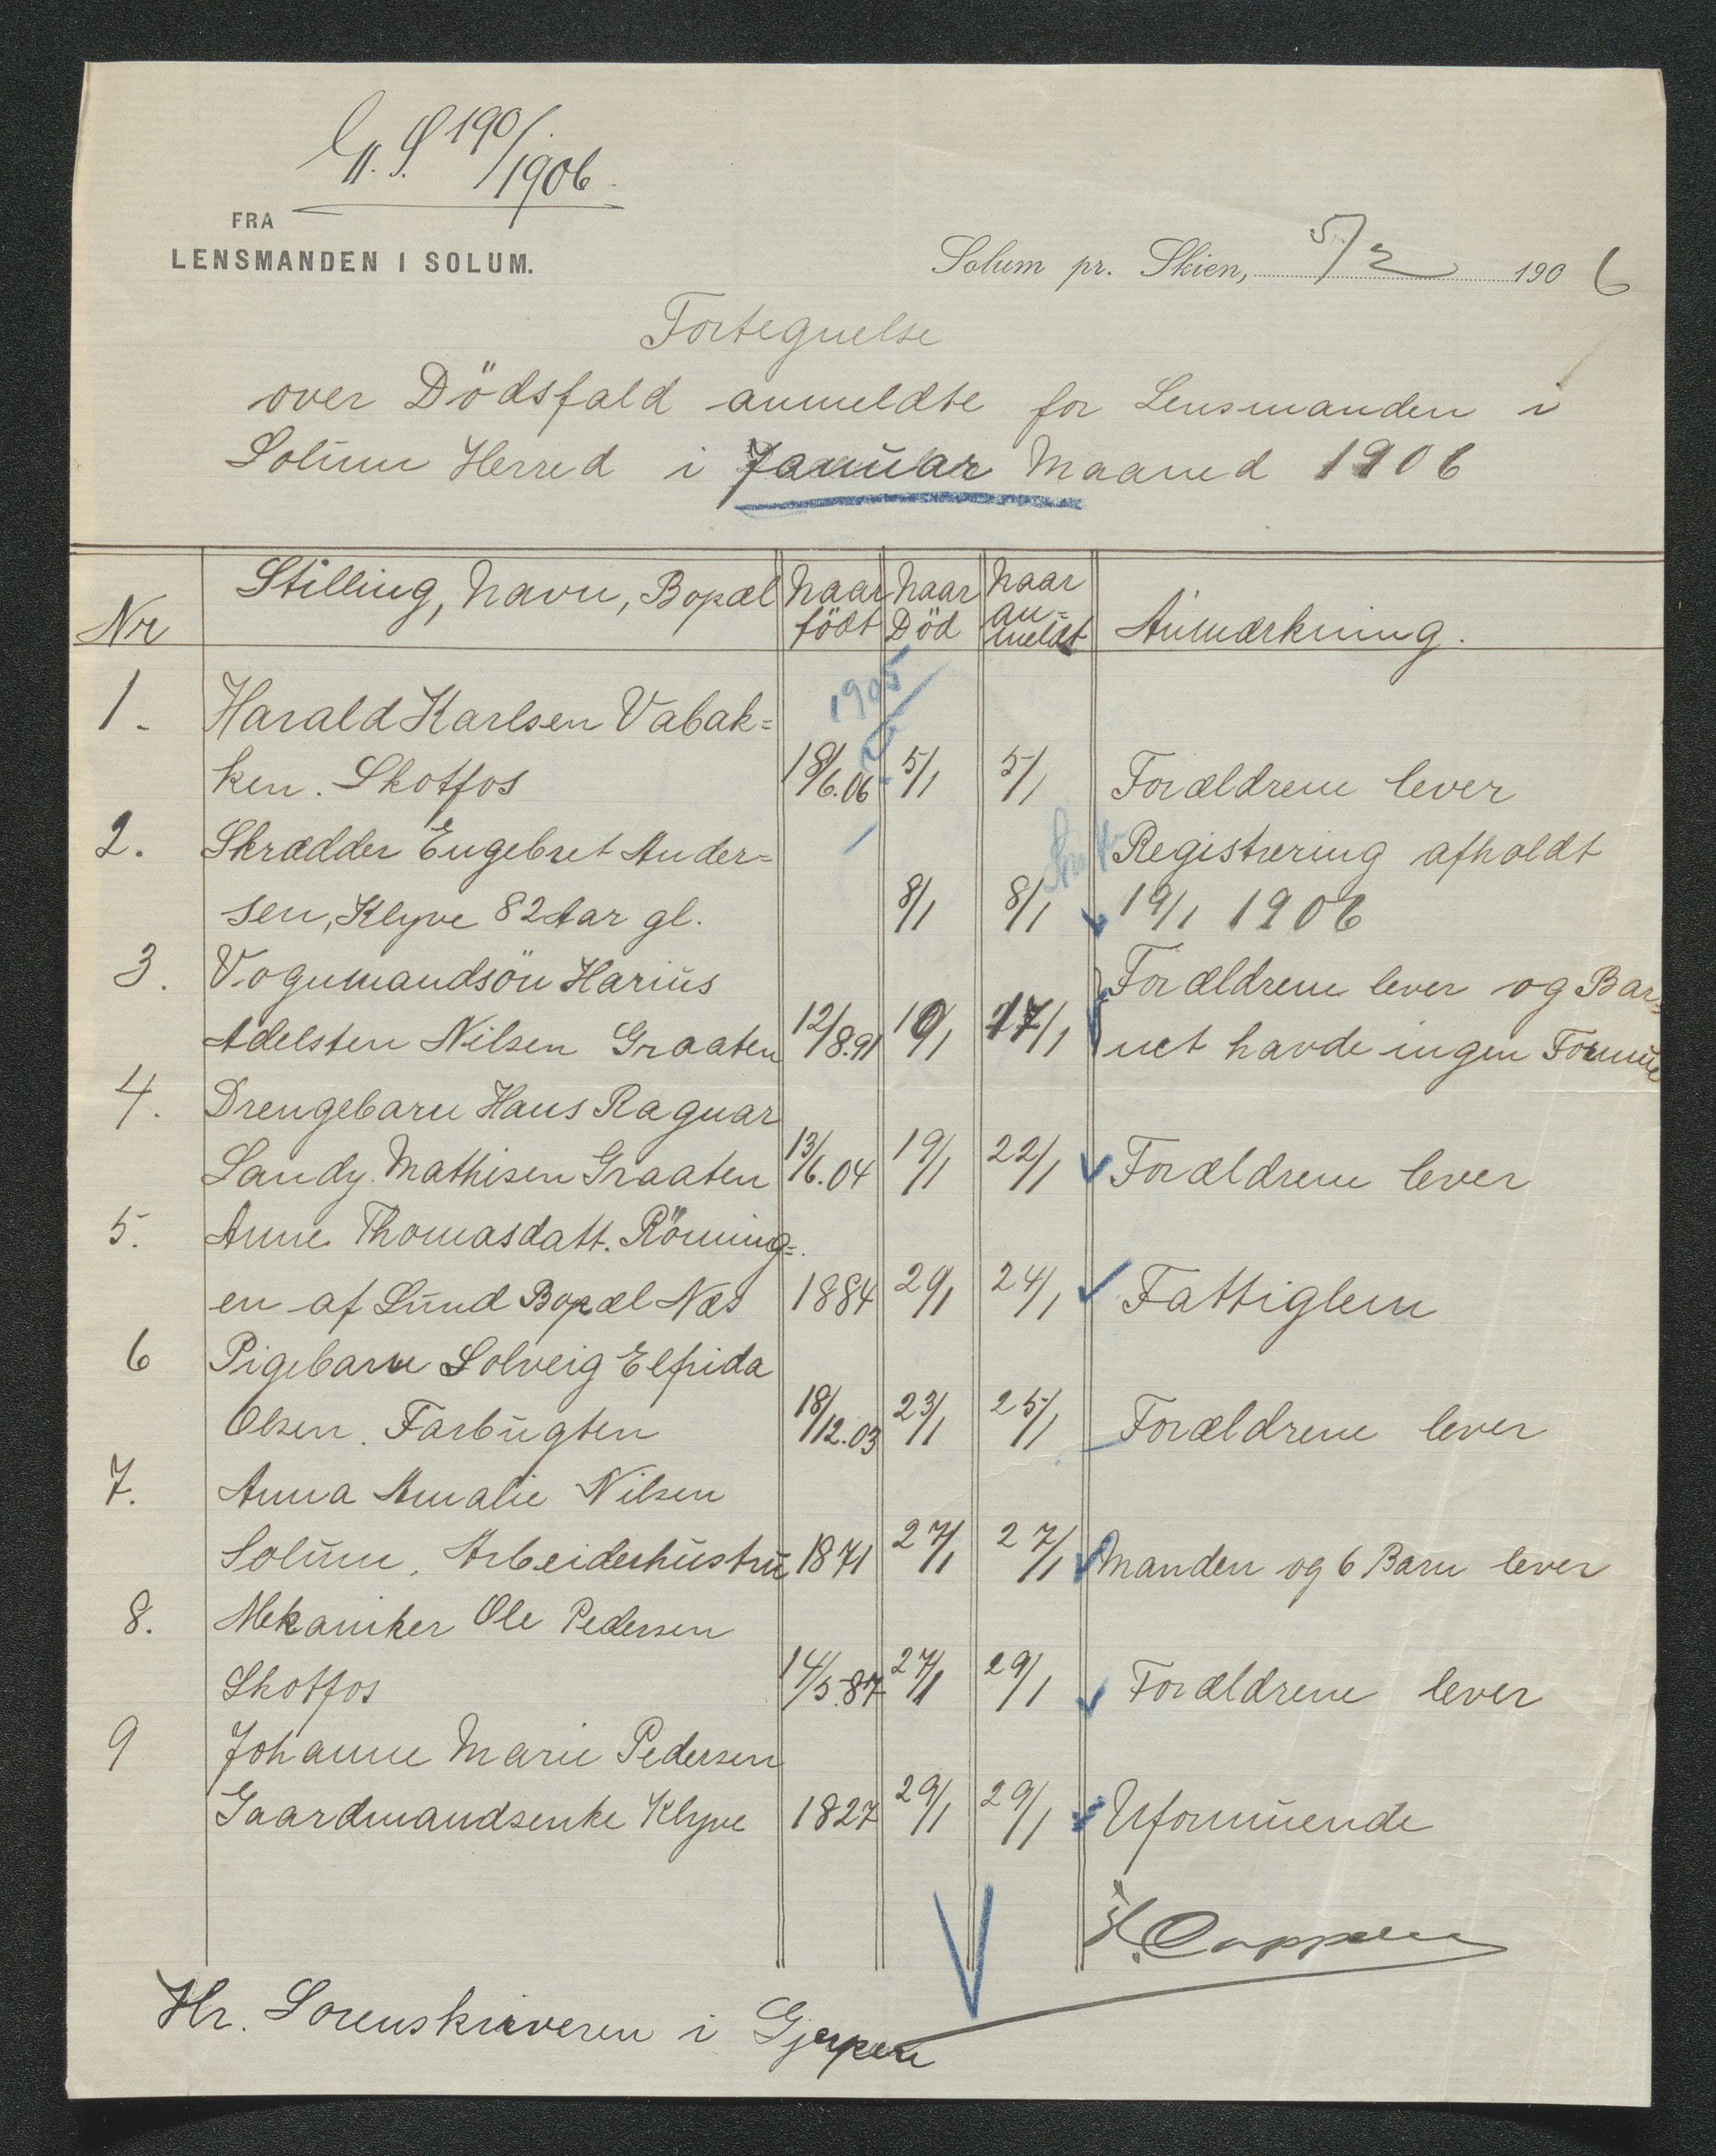 G. S 190/1906.
FRA
LENSMANDEN I SOLUM.
Solum pr. Skien, 5/2 1906
Fortegnelse
over Dödsfald anmeldte for Lensmanden i
Solum Herred i Januar Maaned 1906
Nr Stilling, Navn, Bopæl Naar födt Naar Död Naar an=meldt Anmærkning.
1905
1. Harald Karlsen Vabak=
ken. Skotfos 18/6.06 5/1 5/1 Forældrene lever
2. Skrædder Engebret Ander= Registrering afholdt
sen, Klyve 82 Aar gl. 8/1 8/1 19/1 1906
3. Vognmandsön Harius Forældrene lever og Bar=
Adelsten Nilsen Graaten 12/8.91 10/1 17/1 net havde ingen Formue
4. Drengebarn Hans Ragnar
Sandy Mathisen Graaten 13/6.04 19/1 22/1 Forældrene lever
5. Anne Thomasdatt. Rönning=
en af Lund Bopæl Næs 1884 29/1 24/1 Fattiglem
6 Pigebarn Solveig Elfrida
Olsen. Farbugten 18/12.03 23/1 25/1 Forældrene lever
7. Anna Amalie Nilsen
Solum, Arbeiderhustru 1871 27/1 27/1 Manden og 6 Barn lever
8. Mekaniker Ole Pedersen
Skotfos 14/5.87 27/1 29/1 Forældrene lever
9 Johanne Marie Pedersen
Gaardmandsenke Klyve 1827 29/1 29/1 Uformuende
H. Cappelen
Hr. Sorenskriveren i Gjerpen